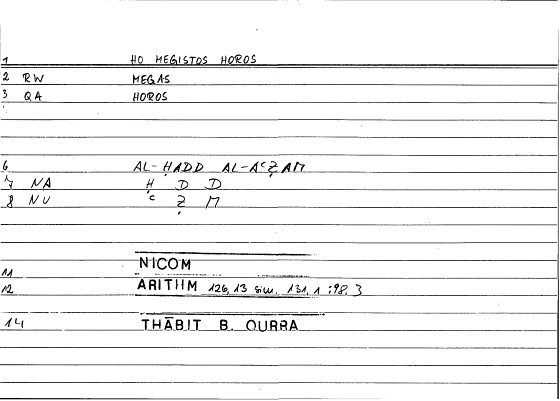 1 HO MEGISTOS HOROS
2 RW MEGAS
3 QA HOROS
6 AL-ḤADD AL-AᶜẒAM
7 NA Ḥ D D
8 NU ᶜ Ẓ M
11 NICOM
12 ARITHM 126,13 sim. 131,1 :98.3
14 THĀBIT B. QURRA